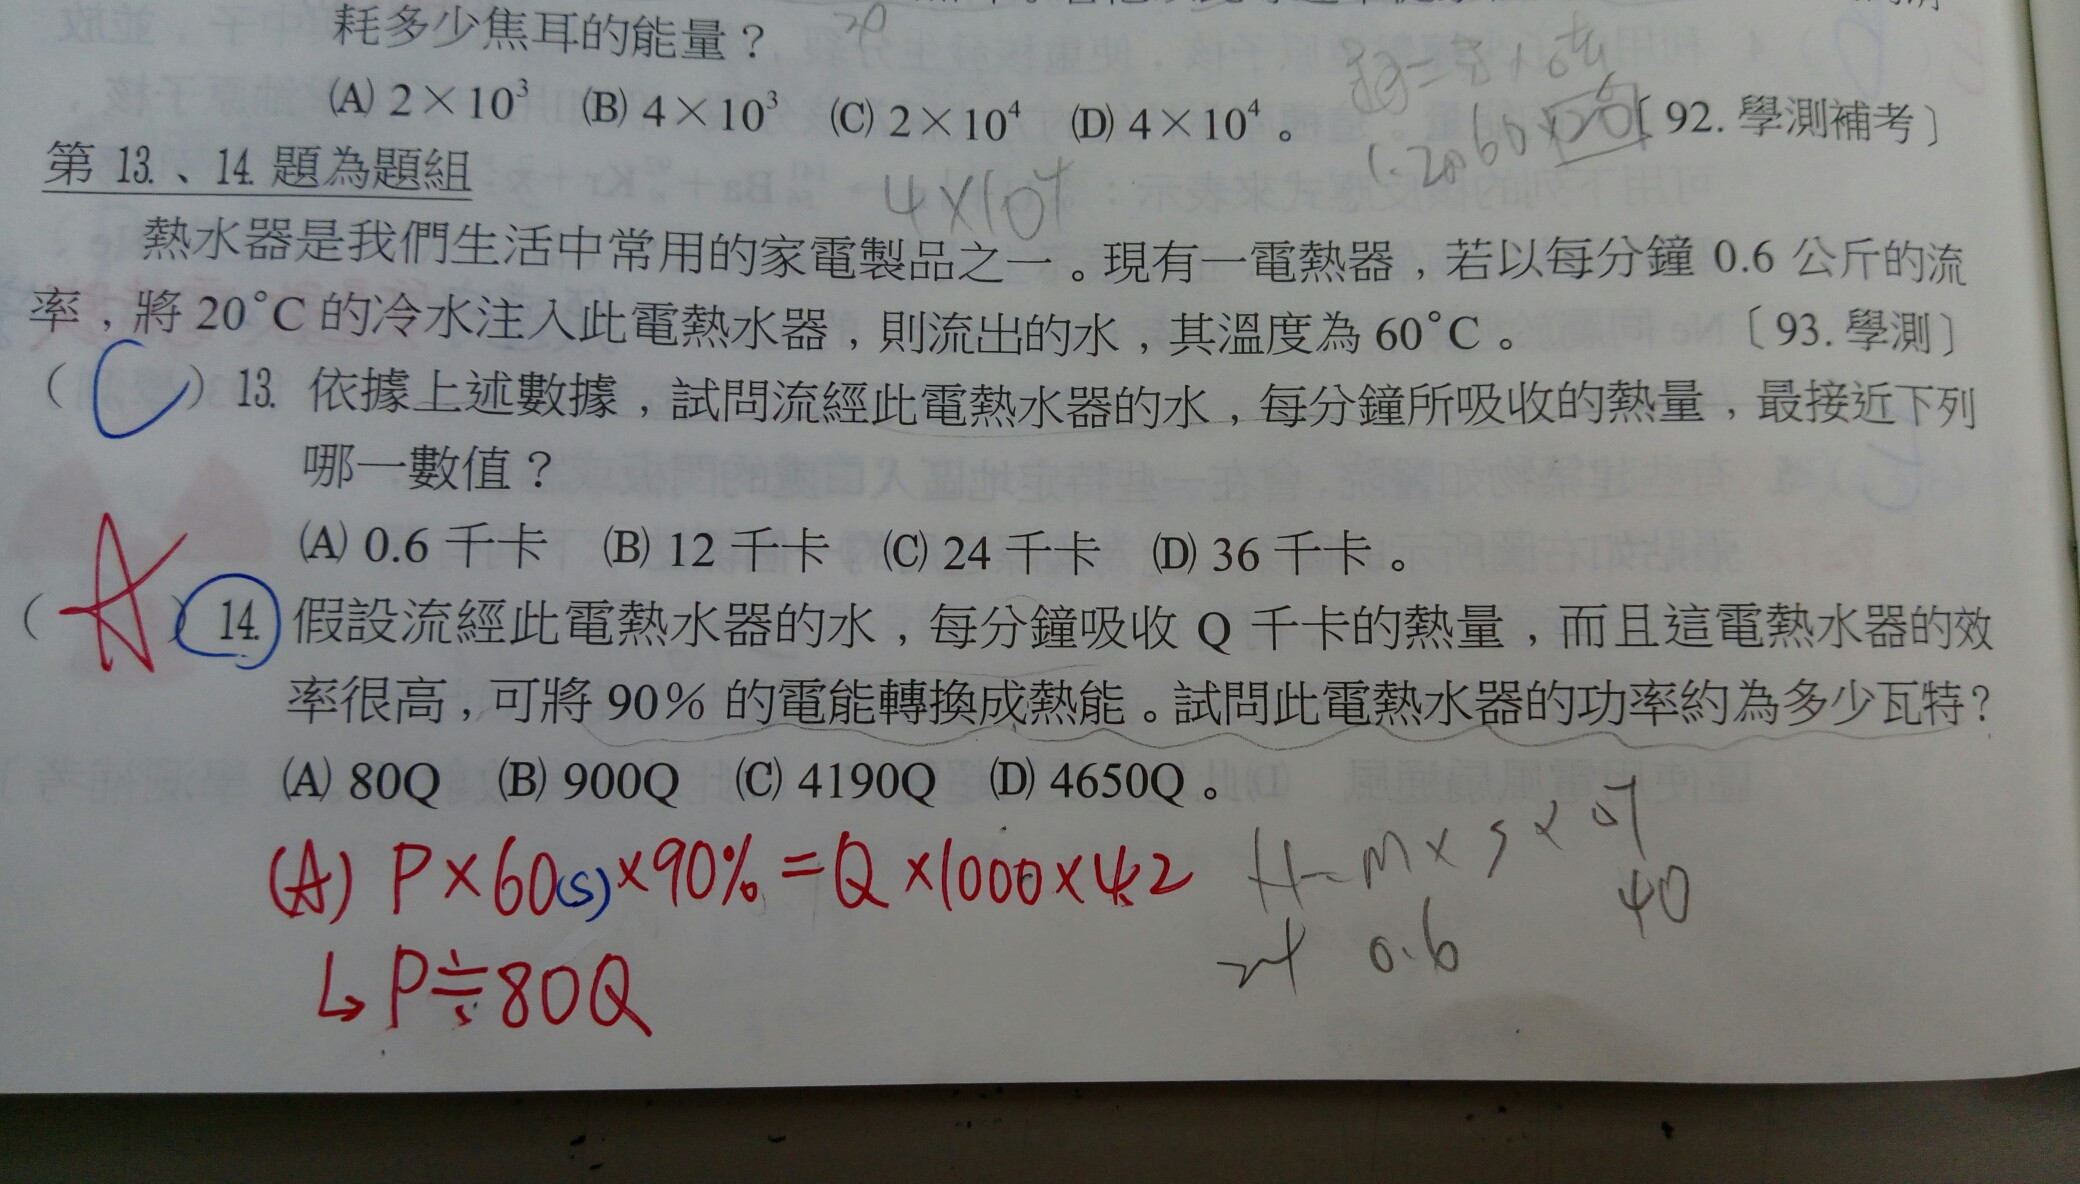 耗多少焦耳的能量？
(A) 2×10³ (B) 4×10³ (C) 2×10⁴ (D) 4×10⁴。 〔92.學測補考〕
4×10⁴
第 13.、14. 題為題組
熱水器是我們生活中常用的家電製品之一。現有一電熱器，若以每分鐘 0.6 公斤的流
率，將 20°C 的冷水注入此電熱水器，則流出的水，其溫度為 60°C。 〔93.學測〕
( C ) 13. 依據上述數據，試問流經此電熱水器的水，每分鐘所吸收的熱量，最接近下列
哪一數值？
(A) 0.6 千卡 (B) 12 千卡 (C) 24 千卡 (D) 36 千卡。
( A ) 14. 假設流經此電熱水器的水，每分鐘吸收 Q 千卡的熱量，而且這電熱水器的效
率很高，可將 90% 的電能轉換成熱能。試問此電熱水器的功率約為多少瓦特？
(A) 80Q (B) 900Q (C) 4190Q (D) 4650Q。
(A) P×60(s)×90%=Q×1000×4.2
↳ P≒80Q
H=m×s×ΔT
24 0.6 40